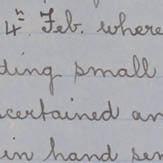 4th Feb. where
ding small
certained an
in hand sen